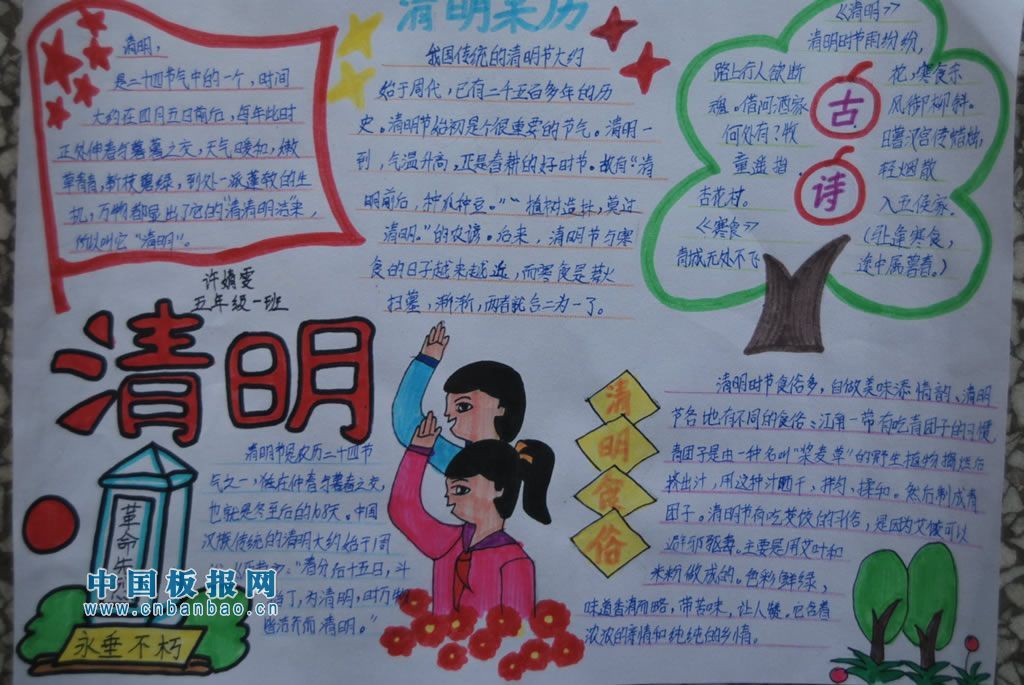 清明,
是二十四节气中的一个,时间
大约在四月五日前后,每年此时
正处仲春与暮春之交,天气暖和,嫩
草青青,新枝碧绿,到处一派蓬勃的生
机,万物都显出了它的"清清明洁来,
所以叫它"清明"。
许婧雯
五年级一班
清明来历
我国传统的清明节大约
始于周代,已有二千五百多年的历
史。清明节始初是个很重要的节气。清明一
到,气温升高,正是春耕的好时节。故有"清
明前后,种瓜种豆。""植树造林,莫过
清明。"的农谚。后来,清明节与寒
食的日子越来越近,而寒食是禁火
扫墓,渐渐,两者就合二为一了。
古诗
《清明》
清明时节雨纷纷,
路上行人欲断
魂。借问酒家
何处有?牧
童遥指
杏花村。
《寒食》
春城无处不飞
花,寒食东
风御柳斜。
日暮汉宫传蜡烛,
轻烟散
入五侯家。
寒食,
途中属暮春。)
清明
革命先
永垂不朽
清明节是农历二十四节
气之一,在仲春与暮春之交,
也就是冬至后的108天。中国
汉族传统的清明大约始于周
"春分后十五日,斗
丁,为清明,时万物
洁而清明。"
中国板报网
www.cnbanbao.cn
清明食俗
清明时节食俗多,自做美味添情韵、清明
节各地有不同的食俗:江南一带有吃青团子的习惯
青团子是由一种名叫"浆麦草"的野生植物捣烂后
挤出汁,用这种汁晒干,拌匀、揉和。然后制成青
团子。清明节有吃艾饺的习俗,是因为艾饺可以
避邪驱毒。主要是用艾叶和
米粉做成的。色彩鲜绿,
味道香清而略,带苦味,让人馋。它含着
浓浓的亲情和纯纯的乡情。